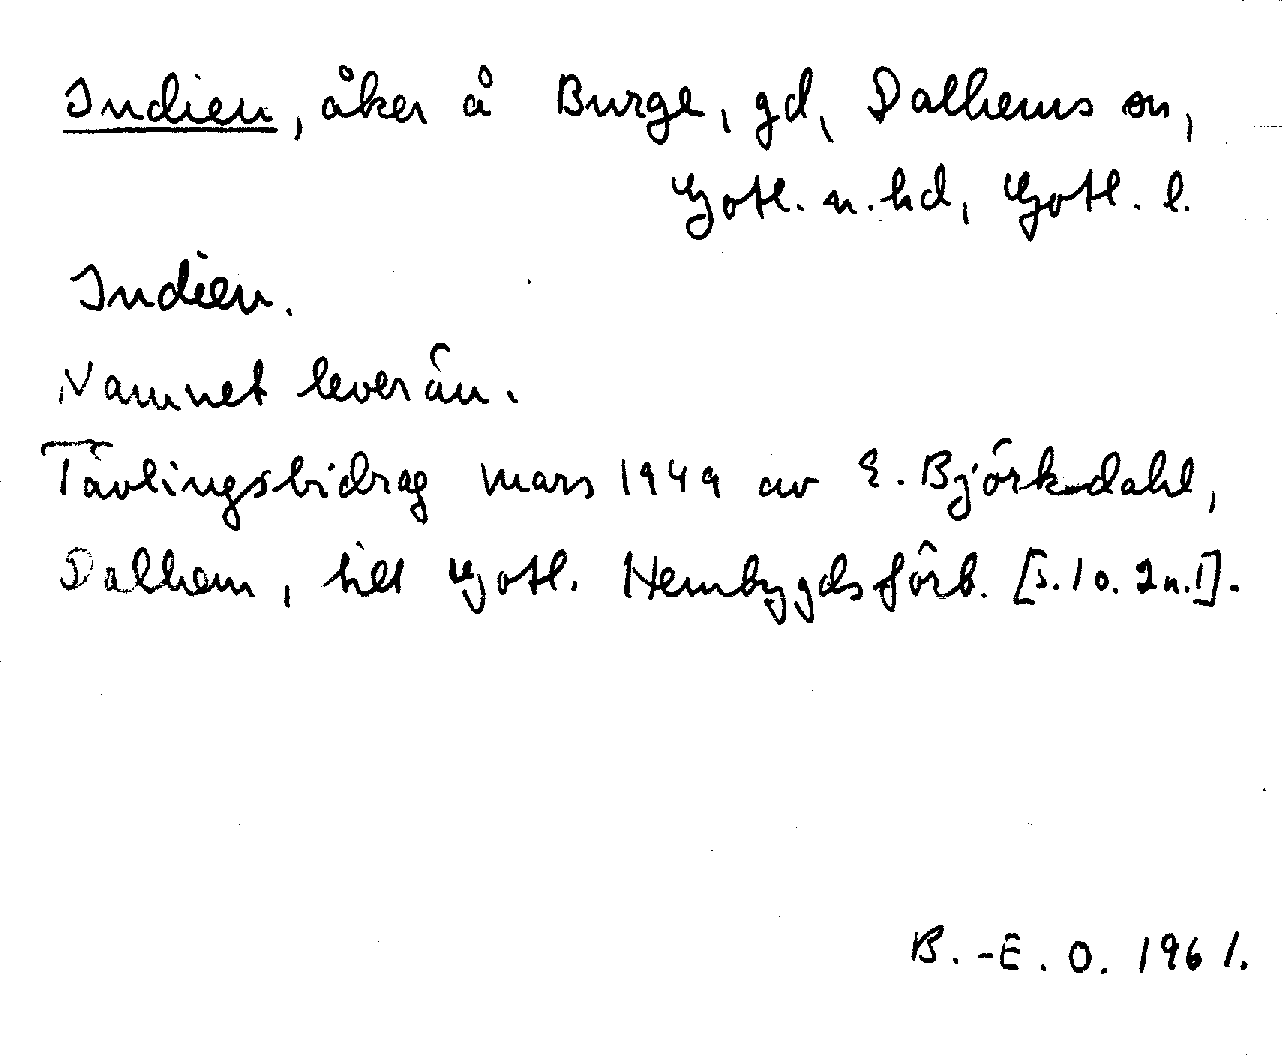 Indien, åker å Burge, gd, Dalhems sn,
Gotl. n. hd, Gotl. l.
Indien.
Namnet lever än.
Tävlingsbidrag mars 1949 av E. Björkdahl,
Dalhem, till Gotl. Hembygdsförb. [s. 1 o. 2 n. 1].
B.-E. O. 1961.